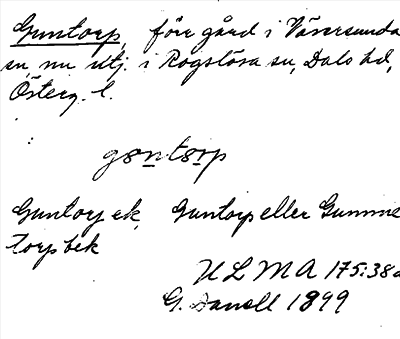 Guntorp, förr gård i Väversunda
sn, nu utj. i Rogslösa sn, Dals hd,
Österg. l.
gontorp
Guntorp ek, Guntorp eller Gumme
torp bek
ULMA 175:38a
G. Danell 1899